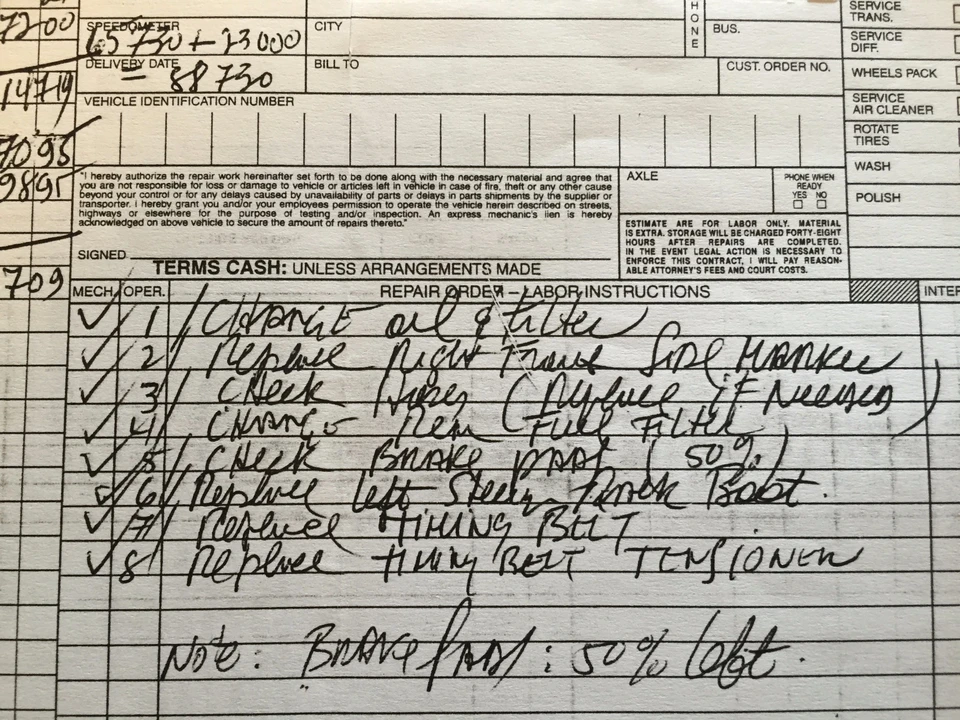 7200
SPEEDOMETER
65730 + 23000
CITY
PHONE
BUS.
SERVICE TRANS.
SERVICE DIFF.
DELIVERY DATE
= 88730
BILL TO
CUST. ORDER NO.
WHEELS PACK
14719
VEHICLE IDENTIFICATION NUMBER
SERVICE AIR CLEANER
ROTATE TIRES
7095
9895
WASH
POLISH
"I hereby authorize the repair work hereinafter set forth to be done along with the necessary material and agree that
you are not responsible for loss or damage to vehicle or articles left in vehicle in case of fire, theft or any other cause
beyond your control or for any delays caused by unavailability of parts or delays in parts shipments by the supplier or
transporter. I hereby grant you and/or your employees permission to operate the vehicle herein described on streets,
highways or elsewhere for the purpose of testing and/or inspection. An express mechanic's lien is hereby
acknowledged on above vehicle to secure the amount of repairs thereto."
AXLE
PHONE WHEN
READY
YES NO
ESTIMATE ARE FOR LABOR ONLY. MATERIAL
IS EXTRA. STORAGE WILL BE CHARGED FORTY-EIGHT
HOURS AFTER REPAIRS ARE COMPLETED.
IN THE EVENT LEGAL ACTION IS NECESSARY TO
ENFORCE THIS CONTRACT, I WILL PAY REASON-
ABLE ATTORNEY'S FEES AND COURT COSTS.
SIGNED
TERMS CASH: UNLESS ARRANGEMENTS MADE
709
MECH. OPER. REPAIR ORDER – LABOR INSTRUCTIONS INTER
✓ 1 CHANGE oil & Filter
✓ 2 Replace Right Front SIDE MARKER
✓ 3 CHeck Hoses (Replace if Needed)
✓ 4 CHANGE Rem Fuel FILTER
✓ 5 CHeck BRAKE PADS (50%)
✓ 6 Replace left Steering Rack Boot.
✓ 7 Replace TIMING BELT
✓ 8 Replace TIMING BELT TENSIONER
Note: BRAKE PADS: 50% left.